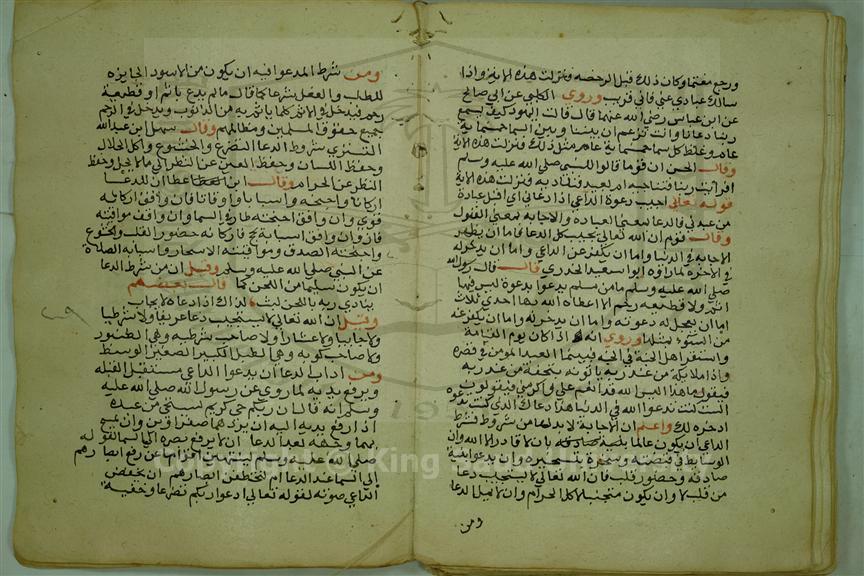 ورجع مغتما وكان ذلك قبل الرخصة فنزلت هذه الاية واذا
سالك عبادي عني فاني قريب وروي الكلبي عن ابي صالح
عن ابن عباس رضي الله عنهما قال قالت اليهود كيف يسمع
ربنا دعانا وانت تزعم ان بيننا وبين السما خمسماية
عام وغلظ كل سما خمسماية عام مثل ذلك فنزلت هذه الاية
وقال الحسن ان قوما قالوا للنبي صلى الله عليه وسلم
اقريب ربنا فنناجيه ام بعيد فنناديه فنزلت هذه الاية
قوله تعالى اجيب دعوة الداعي اذا دعاني اي اقبل عبادة
من عبدني فالدعا بمعنى العبادة والاجابة بمعنى القبول
وقال قوم ان الله تعالى يجيب كل الدعا فاما ان يظهر
الاجابة في الدنيا واما ان يكفر عن الداعي واما ان يدخر له
في الاخرة لما رواه ابو سعيد الخدري قال قال رسول الله
صلى الله عليه وسلم ما من مسلم يدعوا بدعوة ليس فيها
اثم ولا قطيعة رحم الا اعطاه الله بها احدى ثلاث
اما ان يعجل له دعوته واما ان يدخر له واما ان يكف عنه
من السوء بمثلها وروي انه اذا كان يوم القيامة
واستقر اهل الجنة في الجنة فبينما العبد المومن في قصره
واذا ملايكة من عند ربه ياتونه بتحفة من عند ربه
فيقول ما هذا اليس الله قد انعم علي واكرمني فيقولون
الست كنت تدعوا الله في الدنيا هذا دعاك الذي كنت تدعوه
ادخره لك واعلم ان الاجابة لا بد لها من شروط فشرط
الداعي ان يكون عالما بان لا قادر الا الله وان
الوسايط في قبضته ومسخرة بتسخيره وان يدعوا بنية
صادقة وحضور قلب فان الله تعالى لا يستجيب دعا
من قلب لاه وان يكون متجنبا لاكل الحرام وان لا يمل الدعا
ومن
ومن شرط المدعوا فيه ان يكون من الامور الجايزة
للطلب والفعل شرعا كما قال ما لم يدع باثم او قطيعة
رحم فيدخل في الاثم كلما ياثم به من الذنوب ويدخل في الرحم
جميع حقوق المسلمين ومظالمهم وقال سهل ابن عبد الله
التستري شروط الدعا التضرع والخشوع واكل الحلال
وحفظ اللسان وحفظ العين عن النظر الى ما لا يحل وحفظ
النظر عن الحرام وقال ابن عطا ان للدعا
اركانا واجنحة واسبابا واوقاتا فان وافق اركانه
قوي وان وافق اجنحته طار في السما وان وافق مواقيته
فاز وان وافق اسبابه نجح فاركانه حضور القلب والخشوع
واجنحته الصدق ومواقيته الاسحار واسبابه الصلاة
على النبي صلى الله عليه وسلم وقيل ان من شرط الدعا
ان يكون سليما من اللحن كما قال بعضهم
ينادي ربه باللحن ليث لذاك اذا دعاه لا يجاب
وقيل ان الله تعالى لا يستجيب دعا عريف ولا شرطيا
ولا جابيا ولا عشارا ولا صاحب شرطبه وهي الطنبور
ولا صاحب كوبة وهي الطبل الكبير الصغير الوسط
ومن اداب الدعا ان يدعوا الداعي مستقبل القبلة
ويرفع يديه لما روي عن رسول الله صلى الله عليه
وسلم انه قال ان ربكم حي كريم يستحي من عبده
اذا رفع يديه اليه ان يردهما صفراوين وان يمسح
بهما وجهه بعد الدعا ان لا يرفع بصره الى السما لقوله
صلى الله عليه وسلم لينتهين اقواما عن رفع ابصارهم
الى السما عند الدعا او لتخطفن ابصارهم ان يخفض
الداعي صوته لقوله تعالى ادعوا ربكم تضرعا وخفية
Copyright © King Saud University